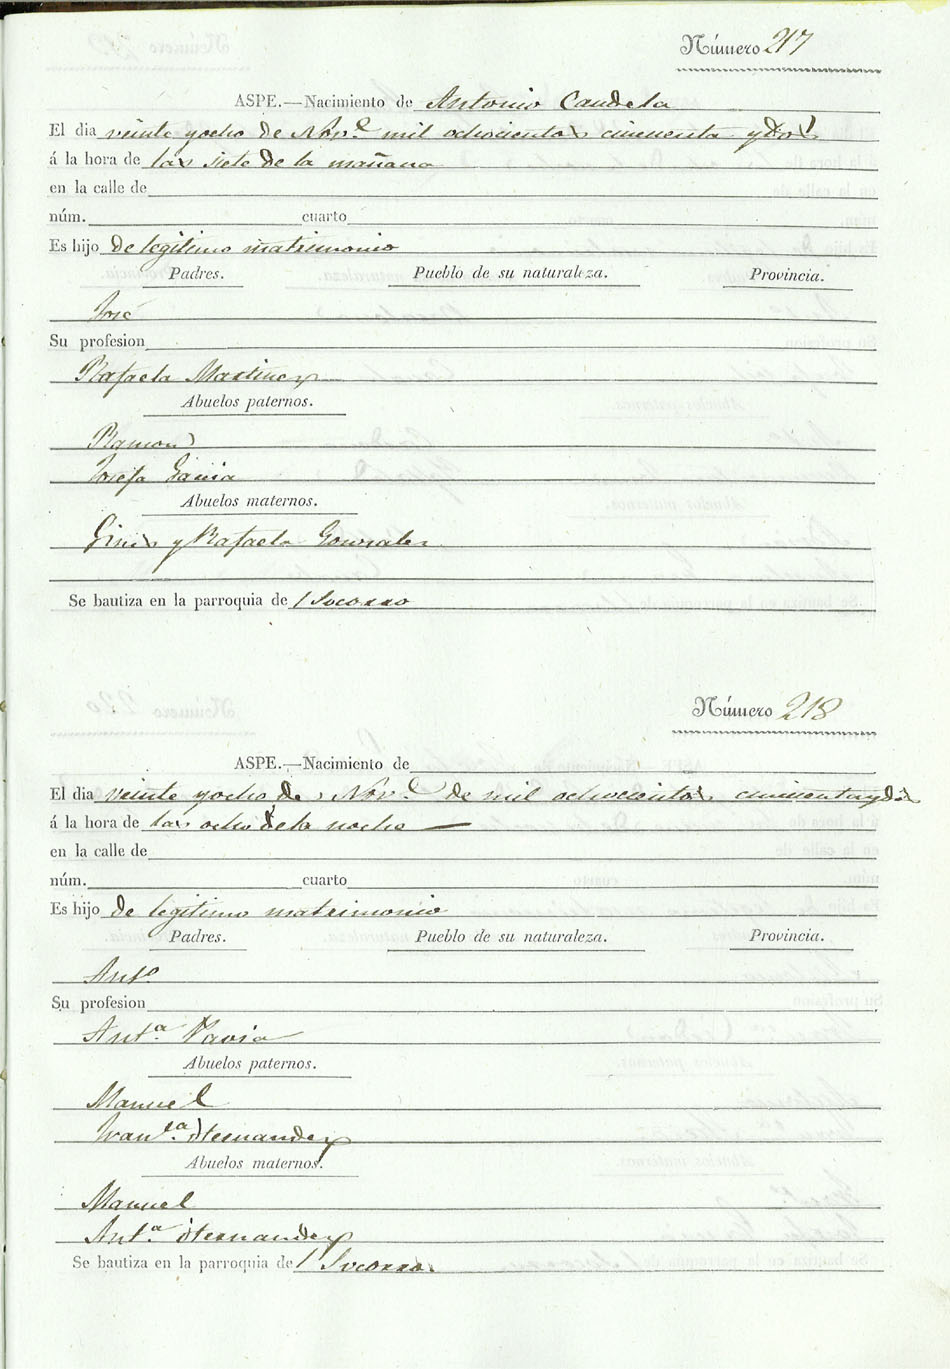 Número 217
ASPE.—Nacimiento de Antonio Candela
El dia veinte y ocho de Nov.e mil ochocientos cincuenta y dos
á la hora de las siete de la mañana
en la calle de
núm. cuarto
Es hijo de legitimo matrimonio
Padres. Pueblo de su naturaleza. Provincia.
José
Su profesion
Rafaela Martinez
Abuelos paternos.
Ramon
Josefa Garcia
Abuelos maternos.
Ginés y Rafaela Gonzalez
Se bautiza en la parroquia de l Socorro
Número 218
ASPE.—Nacimiento de
El dia veinte y ocho de Nov.e de mil ochocientos cincuenta y dos
á la hora de las ocho de la noche —
en la calle de
núm. cuarto
Es hijo de legitimo matrimonio
Padres. Pueblo de su naturaleza. Provincia.
Ant.o
Su profesion
Ant.a Pavia
Abuelos paternos.
Manuel
Fran.ca Hernandez
Abuelos maternos.
Manuel
Ant.a Hernandez
Se bautiza en la parroquia de l Socorro.